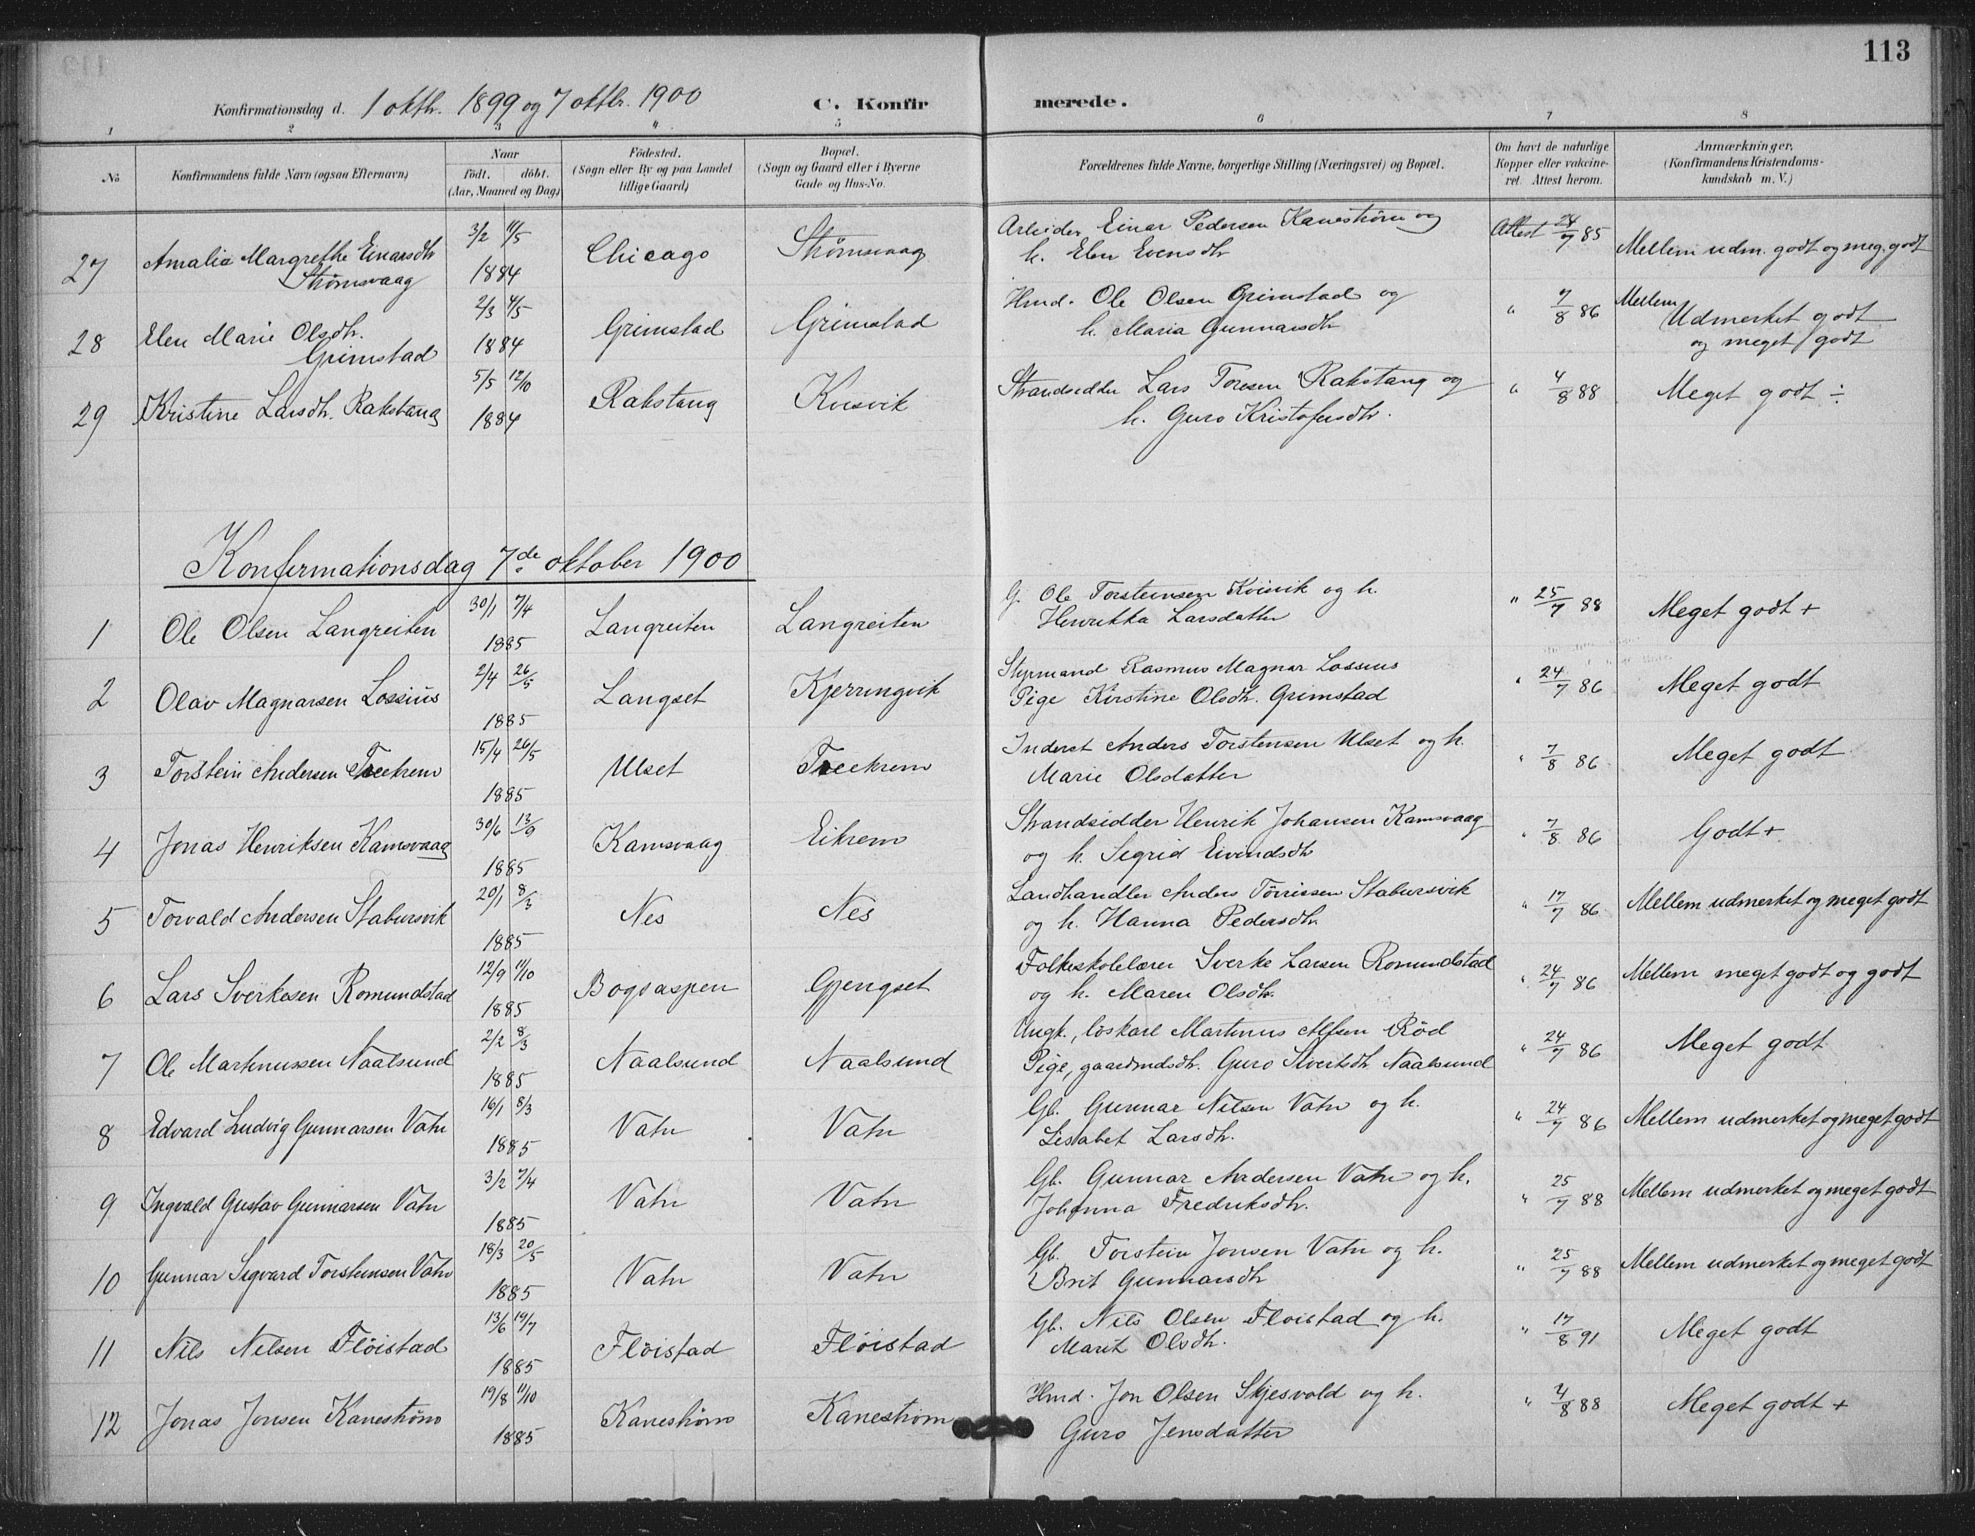 113
Konfirmationsdag d. 1 oktbr. 1899 og 7 oktbr. 1900 C. Konfirmerede.
1 2 3 4 5 6 7 8
No. Konfirmandens fulde Navn (ogsaa Efternavn) Naar født. døbt. (Aar, Maaned og Dag) Fødested. (Sogn eller By og paa Landet tillige Gaard) Bopæl. (Sogn og Gaard eller i Byerne Gade og Hus-No. Forældrenes fulde Navne, borgerlige Stilling (Næringsvei) og Bopæl. Om havt de naturlige Kopper eller vakcineret. Attest herom. Anmærkninger. (Konfirmandens Kristendomskundskab m. V.)
27 Amalie Margrethe Einarsdtr Strømsvaag 3/2 11/5 1884 Chicago Strømsvaag Arbeider Einar Pedersen Kanestrøm og h. Elen Evensdtr Attest 24/7 85 Mellem udm. godt og meg. godt
28 Elen Marie Olsdtr. Grimstad 2/3 4/5 1884 Grimstad Grimstad Hmd. Ole Olsen Grimstad og h. Maria Gunnarsdtr " 7/8 86 Mellem Udmerket godt og meget godt
29 Kristine Larsdtr. Rakstang 5/5 12/10 1884 Rakstang Kvisvik Strandsidder Lars Toresen Rakstang og h. Guro Kristofersdtr. " 4/8 88 Meget godt ÷
Konfirmationsdag 7de oktober 1900
1 Ole Olsen Langreiten 30/1 7/4 1885 Langreiten Langreiten G. Ole Torsteinsen Kvisvik og h. Henrikka Larsdatter " 25/7 88 Meget godt +
2 Olav Magnarsen Lossius 2/4 26/5 1885 Langset Kjerringvik Styrmand Rasmus Magnar Lossius Pige Kirstine Olsdtr. Grimstad " 24/7 86 Meget godt
3 Torstein Andersen Treekrem 15/4 26/5 1885 Ulset Treekrem Inderst Anders Torstensen Ulset og h. Marie Olsdatter " 7/8 86 Meget godt
4 Jonas Henriksen Kamsvaag 30/6 13/9 1885 Kamsvaag Eikrem Strandsidder Henrik Johansen Kamsvaag og h. Sigrid Eivindsdtr " 7/8 86 Godt +
5 Torvald Andersen Stabursvik 20/1 8/3 1885 Nes Nes Landhandler Anders Tørrissen Stabursvik og h. Hanna Pedersdtr. " 17/7 86 Mellem udmerket og meget godt
6 Lars Sverkesen Romundstad 12/9 11/10 1885 Bogsaspen Gjengset Folkeskolelærer Sverke Larsen Romundstad og h. Maren Olsdtr. " 24/7 86 Mellem meget godt og godt
7 Ole Martinussen Naalsund 2/2 8/3 1885 Naalsund Naalsund Ungk., løskarl Martinus Alfsen Rød Pige, gaardmdsdtr. Guro Sivertsdtr Naalsund " 24/7 86 Meget godt
8 Edvard Ludvig Gunnarsen Vatn 16/1 8/3 1885 Vatn Vatn Gb. Gunnar Nilsen Vatn og h. Lisabet Larsdtr. " 24/7 86 Mellem udmerket og meget godt
9 Ingvald Gustav Gunnarsen Vatn 3/2 7/4 1885 Vatn Vatn Gb. Gunnar Andersen Vatn og h. Johanna Fredriksdtr. " 25/7 88 Mellem udmerket og meget godt
10 Gunnar Sigvard Torsteinsen Vatn 18/3 20/5 1885 Vatn Vatn Gb. Torstein Jonsen Vatn og h. Brit Gunnarsdtr " 25/7 88 Mellem udmerket og meget godt
11 Nils Nilsen Fløistad 13/6 19/7 1885 Fløistad Fløistad Gb. Nils Olsen Fløistad og h. Marit Olsdtr. " 17/8 91 Meget godt
12 Jonas Jonsen Kanestrøm 19/8 11/10 1885 Kanestrøm Kanestrøm Hmd. Jon Olsen Skjesvold og h. Guro Jensdatter " 4/8 88 Meget godt +